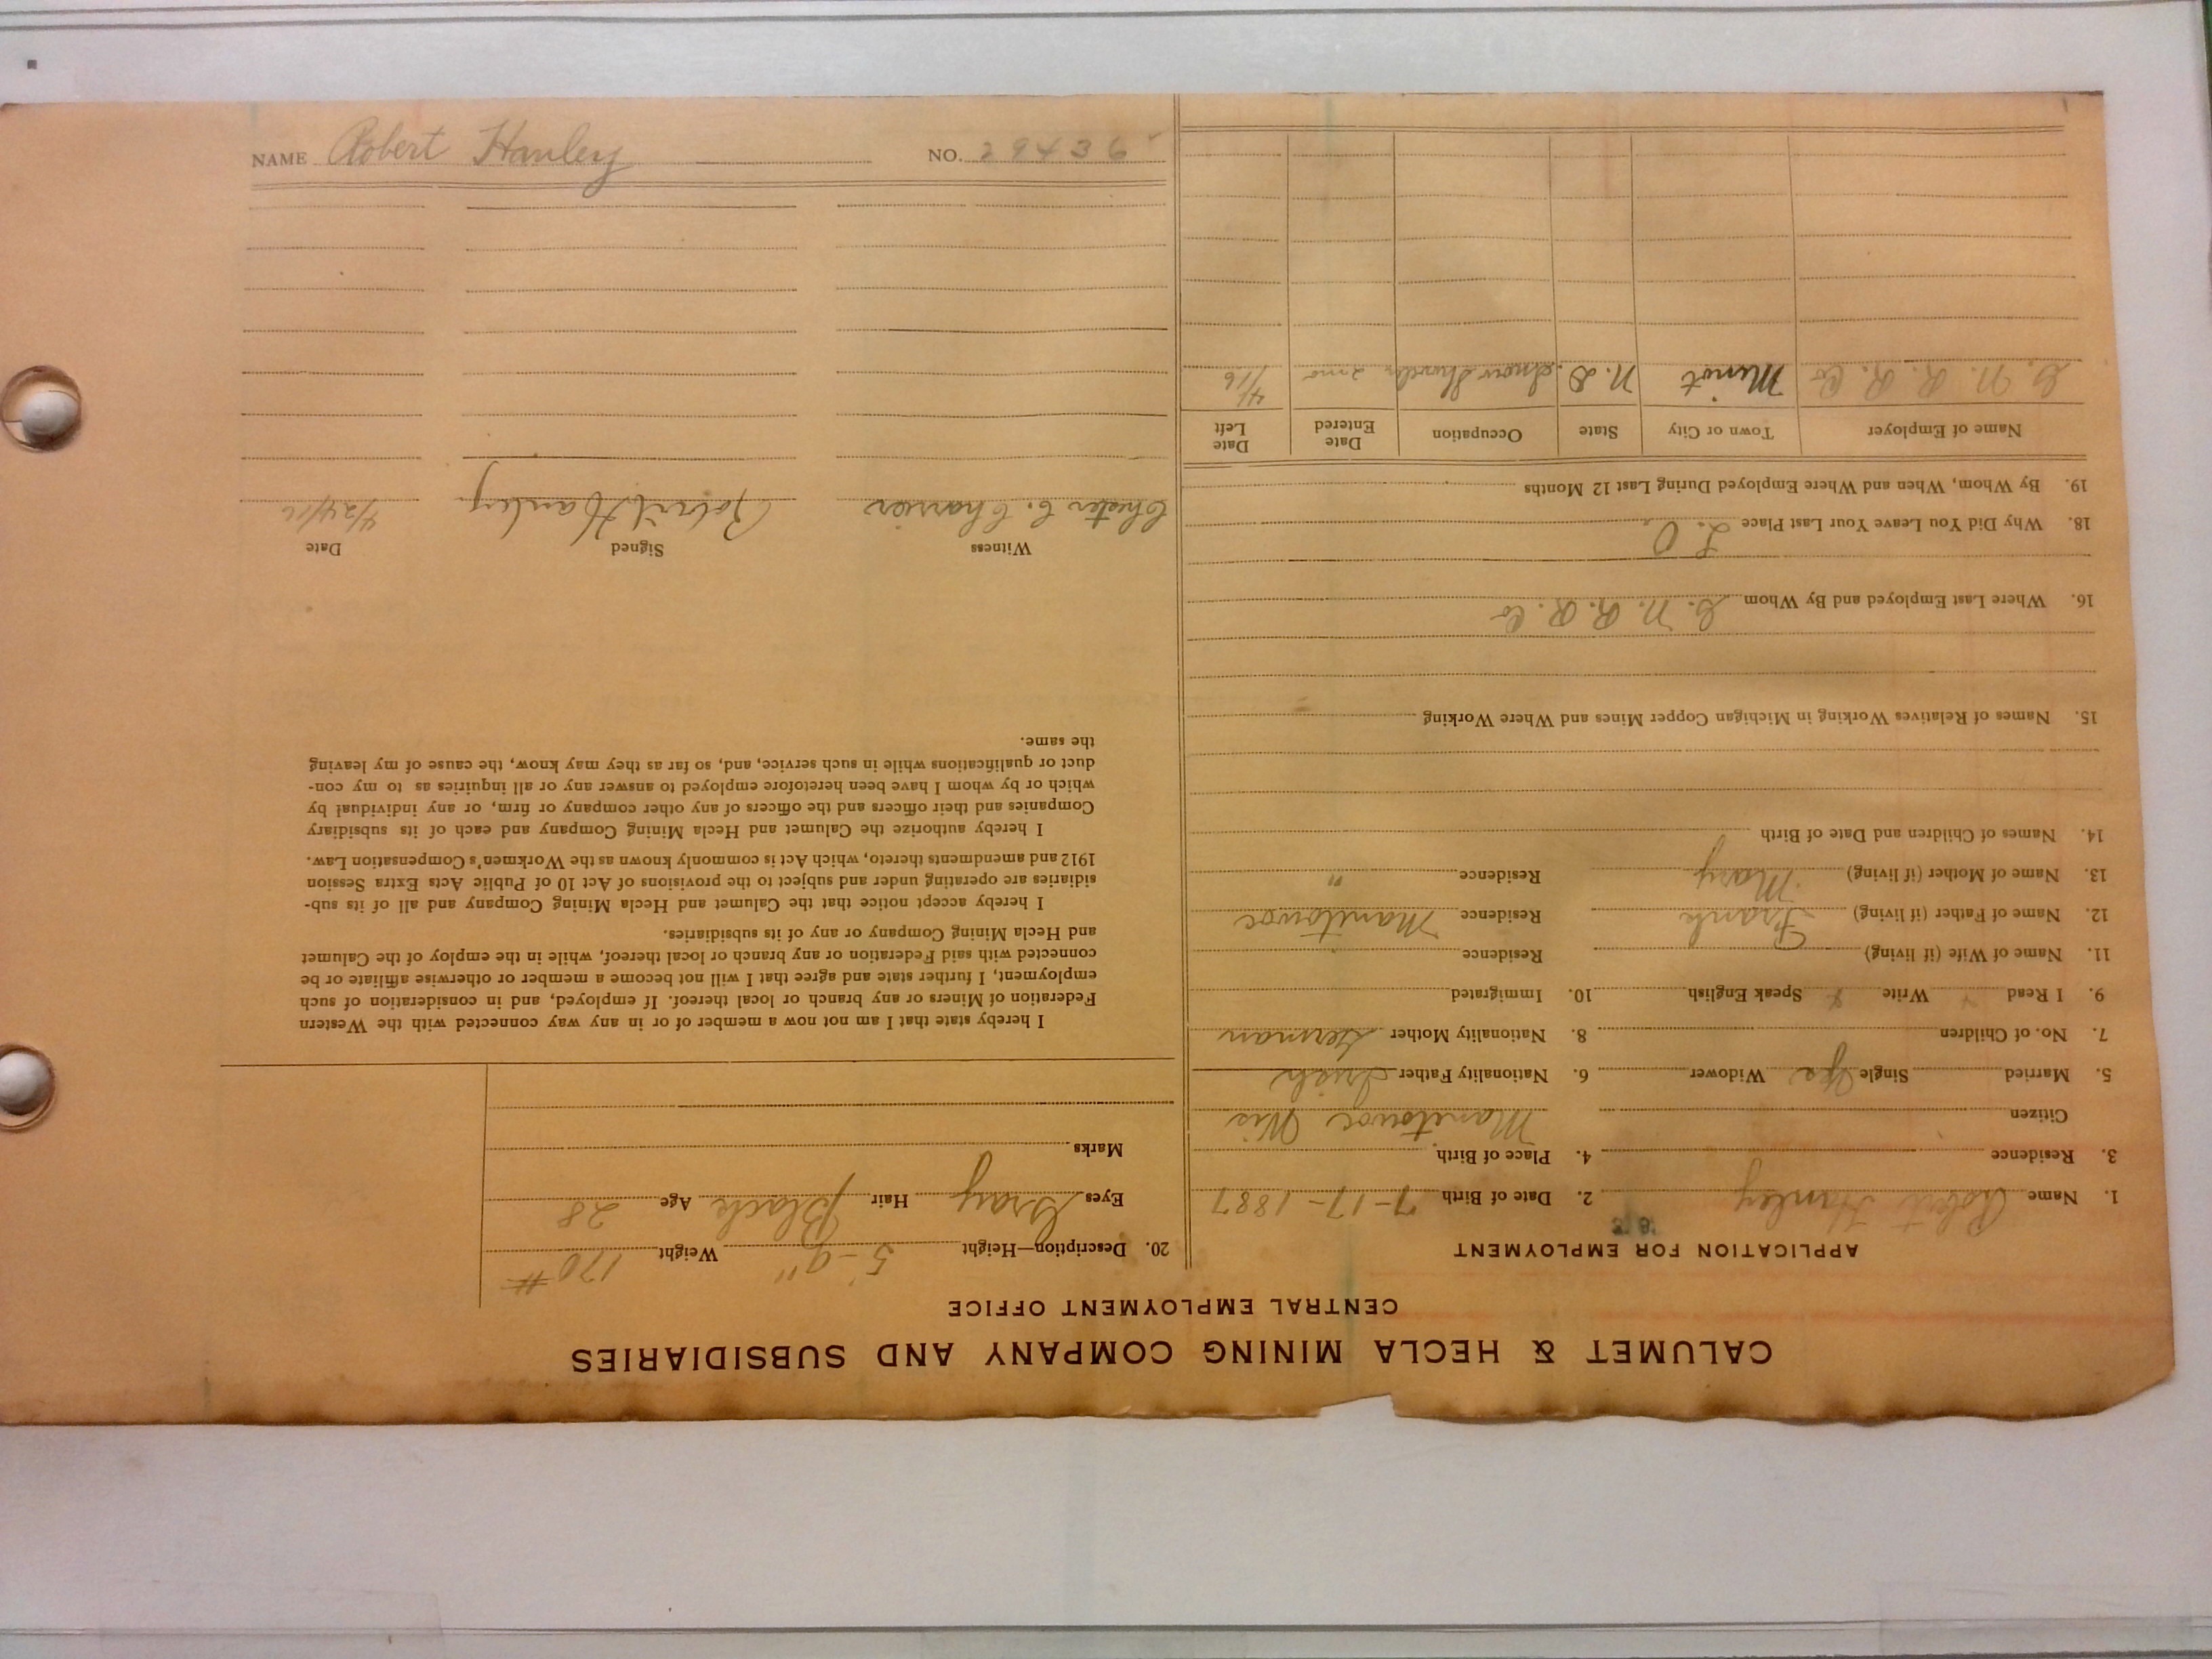 CALUMET & HECLA MINING COMPANY AND SUBSIDIARIES
CENTRAL EMPLOYMENT OFFICE
APPLICATION FOR EMPLOYMENT
1. Name Robert Hanley 2. Date of Birth 7-17-1887
3. Residence 4. Place of Birth
Citizen Manitowoc Wis
5. Married Single Yes Widower 6. Nationality Father Irish
7. No. of Children 8. Nationality Mother German
9. I Read Write Speak English 10. Immigrated
11. Name of Wife (if living) Residence
12. Name of Father (if living) Frank Residence Manitowoc
13. Name of Mother (if living) Mary Residence "
14. Names of Children and Date of Birth
15. Names of Relatives Working in Michigan Copper Mines and Where Working
16. Where Last Employed and By Whom G. N. R. R. Co
18. Why Did You Leave Your Last Place
19. By Whom, When and Where Employed During Last 12 Months
Name of Employer Town or City State Occupation Date Entered Date Left
G. N. R. R. Co Minot N. D. Snow Shoveler 2 mo 4/16
20. Description—Height 5-9" Weight 170 #
Eyes Gray Hair Black Age 28
Marks
I hereby state that I am not now a member of or in any way connected with the Western
Federation of Miners or any branch or local thereof. If employed, and in consideration of such
employment, I further state and agree that I will not become a member or otherwise affiliate or be
connected with said Federation or any branch or local thereof, while in the employ of the Calumet
and Hecla Mining Company or any of its subsidiaries.
I hereby accept notice that the Calumet and Hecla Mining Company and all of its sub-
sidiaries are operating under and subject to the provisions of Act 10 of Public Acts Extra Session
1912 and amendments thereto, which Act is commonly known as the Workmen's Compensation Law.
I hereby authorize the Calumet and Hecla Mining Company and each of its subsidiary
Companies and their officers and the officers of any other company or firm, or any individual by
which or by whom I have been heretofore employed to answer any or all inquiries as to my con-
duct or qualifications while in such service, and, so far as they may know, the cause of my leaving
the same.
Witness Signed Date
Chester C. Robert Hanley 4/24/16
NAME Robert Hanley NO. 29436